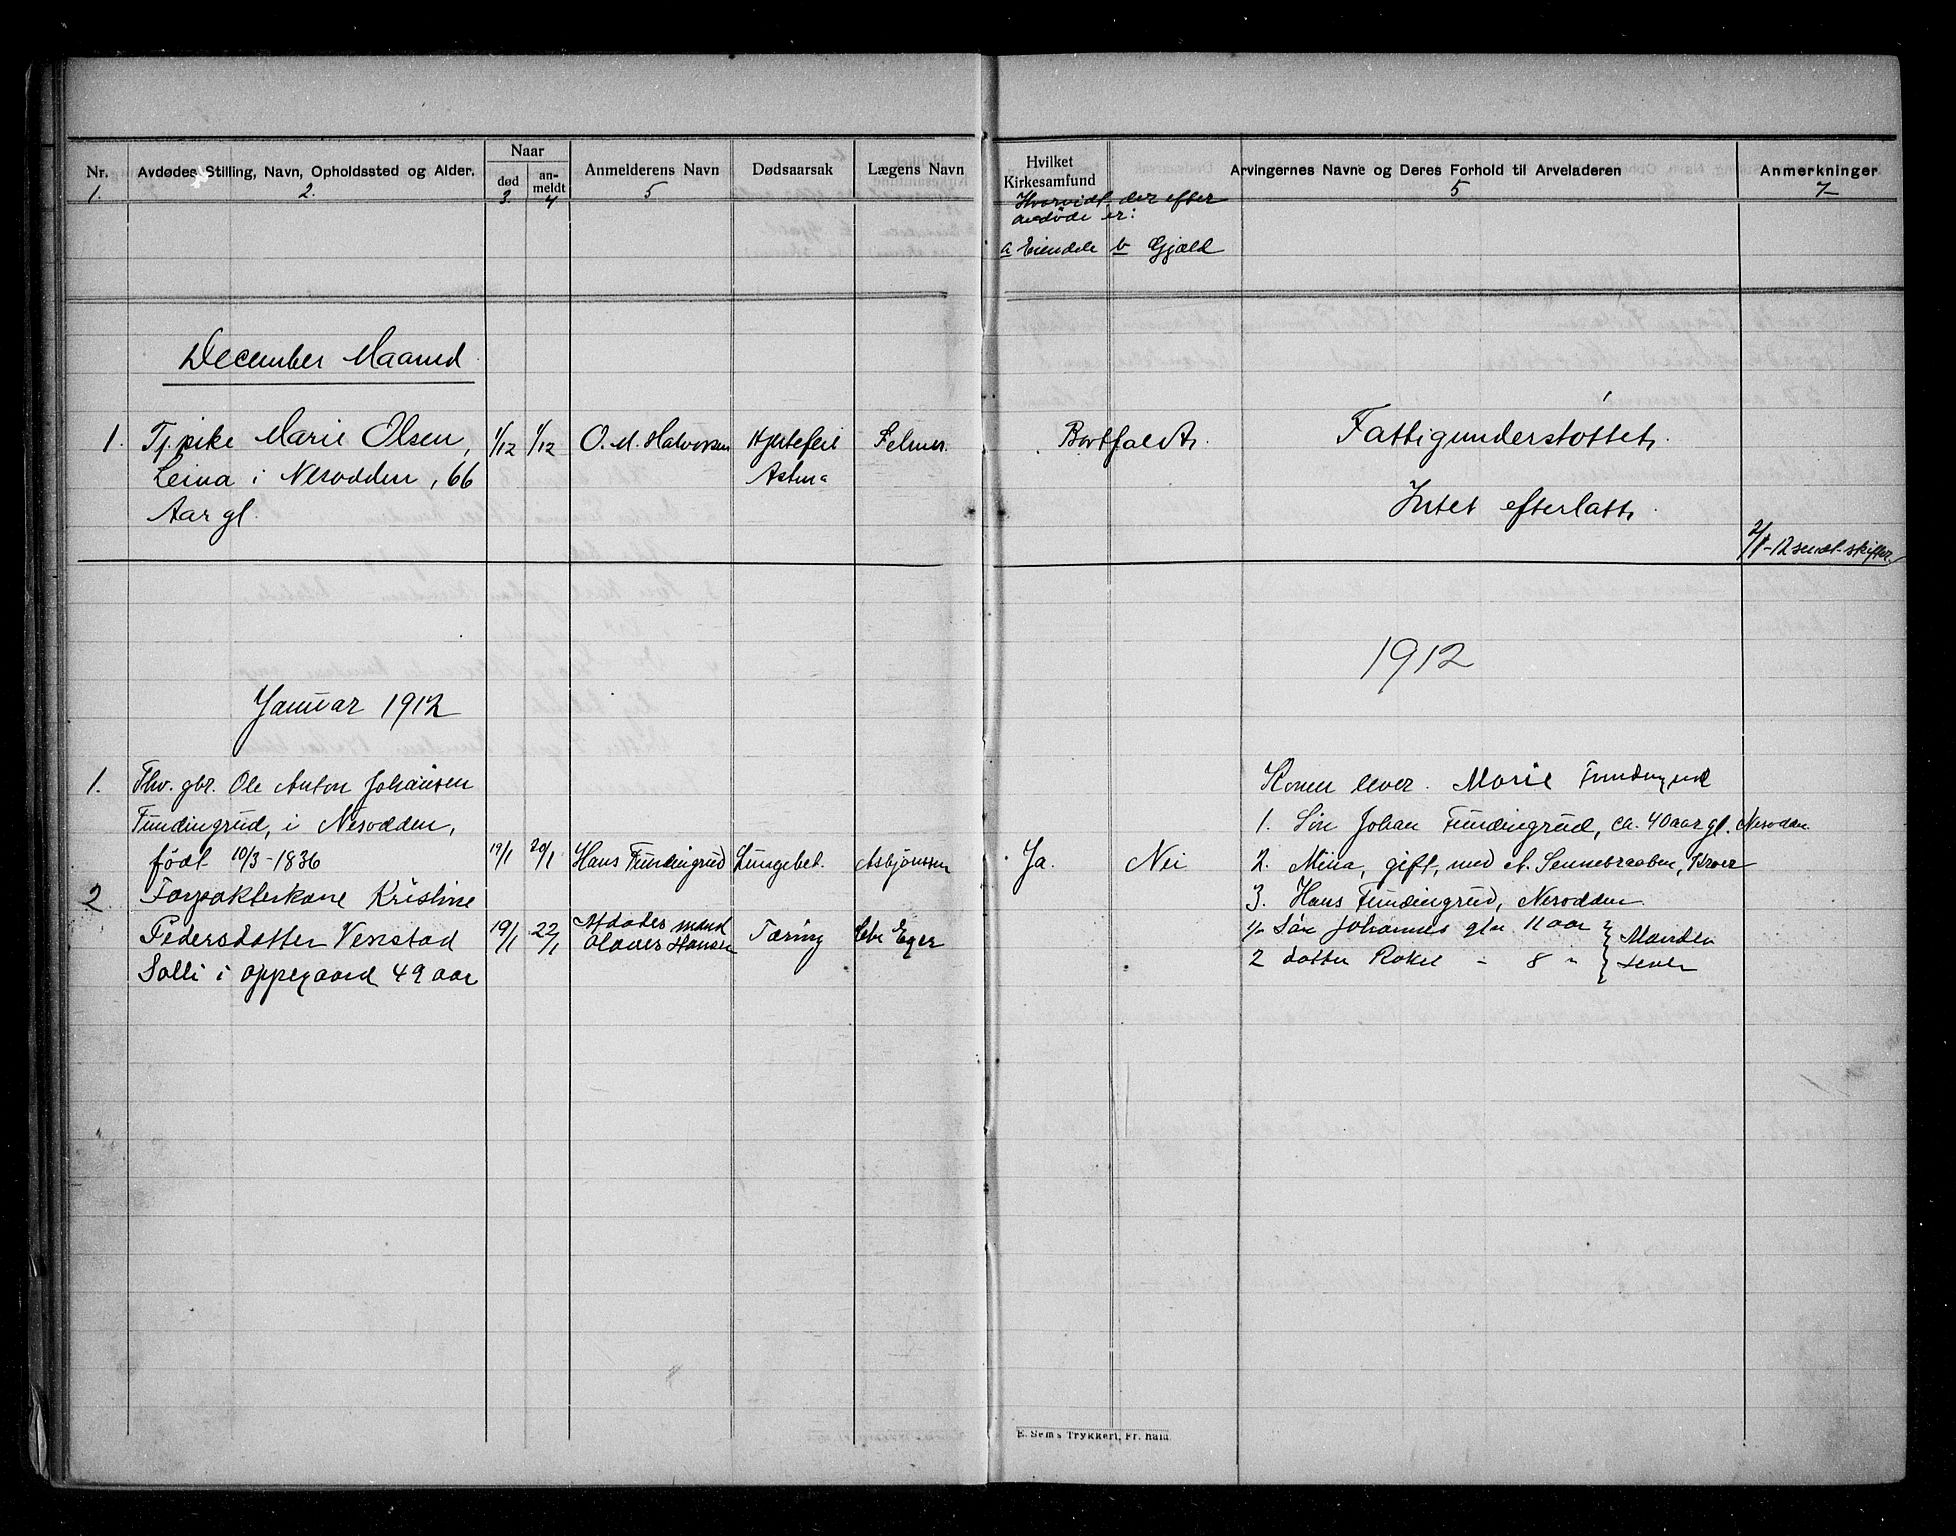 Nr. Avdødes Stilling, Navn, Opholdssted og Alder. Naar død an-meldt Anmelderens Navn Dødsaarsak Lægens Navn Hvilket Kirkesamfund Arvingernes Navne og Deres Forhold til Arveladeren Anmerkninger
1. 2. 3. 4 5 5 7
Hvorvidt der efter
avdöde er:
a Eiendele b Gjæld
December Maaned
1. Tj.pike Marie Olsen, 1/12 1/12 O. M. Halvorsen Hjertefeil Bortfaldt. Fattigunderstøttet.
i Nesodden, 66 Astma
Aar gl. Intet efterlatt.
2/1-12 sendt skifter.
1912
Januar 1912
1. Ole Anton Johansen Konen lever. Marie Fundingrud
Fundingrud, i Nesodden, 1. Søn Johan Fundingrud, ca. 40 aar gl. Nesodden
født 10/3-1836 19/1 20/1 Hans Fundingrud Lungebet. Asbjørnsen Ja. Nei 2. Mina, gift, med A. Sennebraaten, Kroer
2 Forpakterkone Kristine 3. Hans Fundingrud, Nesodden
Pedersdatter 19/1 22/1 Afdødes mand Tæring Eger 1 Søn Johannes 11 aar } Manden
Olaves Hansen 2 datter Rakel " 8 " } lever
Solli i Oppegaard 49 aar
E. Sem's Trykkeri, Fr.hald.